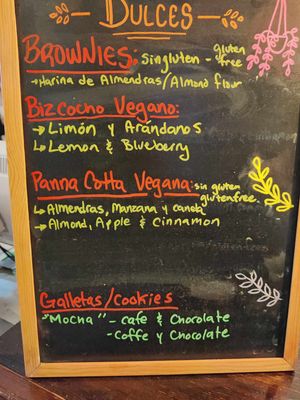 DULCES
BROWNIES: singluten - gluten free
→Harina de Almendras/Almond flour
BIZCOCHO VEGANO:
→ Limón y Arándanos
↳ Lemon & Blueberry
PANNA COTTA VEGANA: sin gluten glutenfree
↳ Almendras, Manzana y canela
→ Almond, Apple & Cinnamon
Galletas/cookies
"Mocha" - cafe & Chocolate
-Coffe y Chocolate